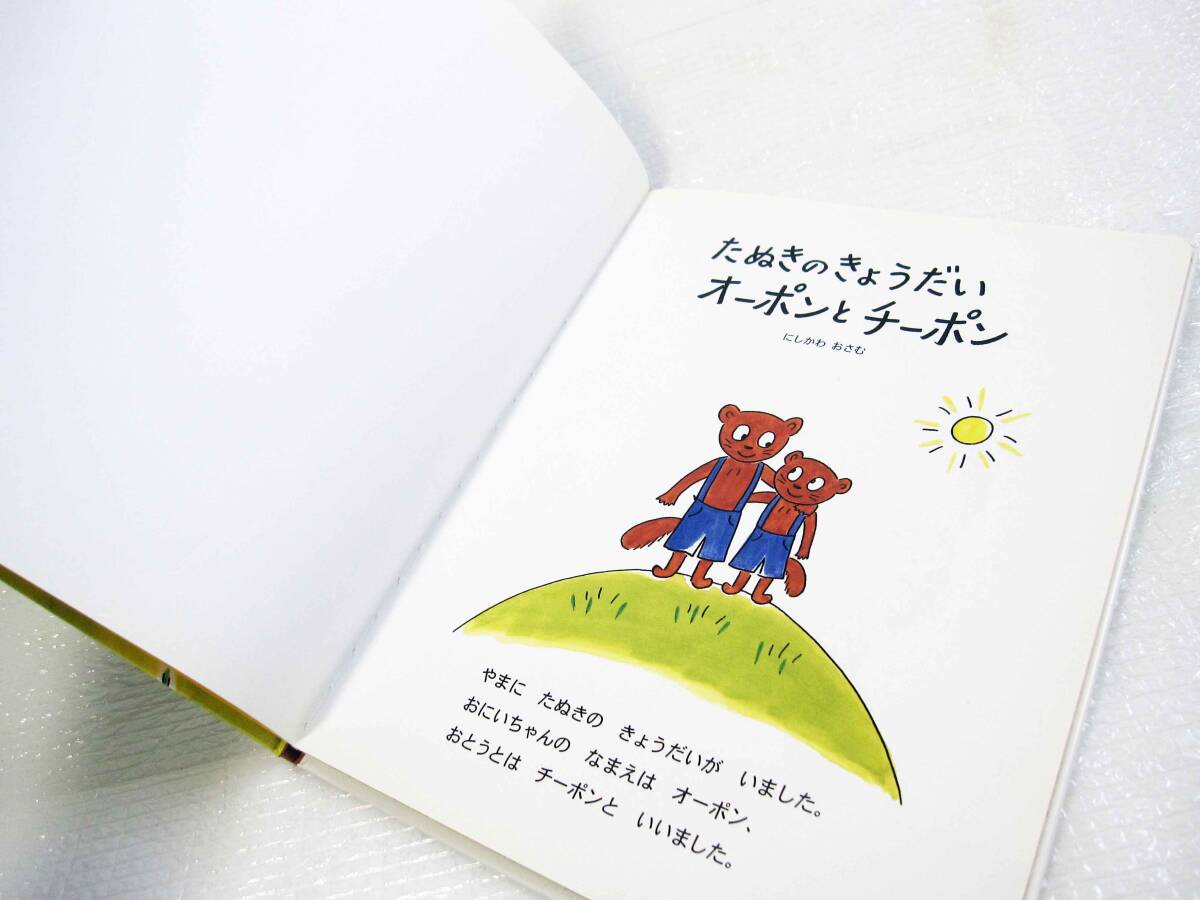 たぬきのきょうだい
オーポンとチーポン
にしかわ おさむ
やまに たぬきの きょうだいが いました。
おにいちゃんの なまえは オーポン、
おとうとは チーポンと いいました。